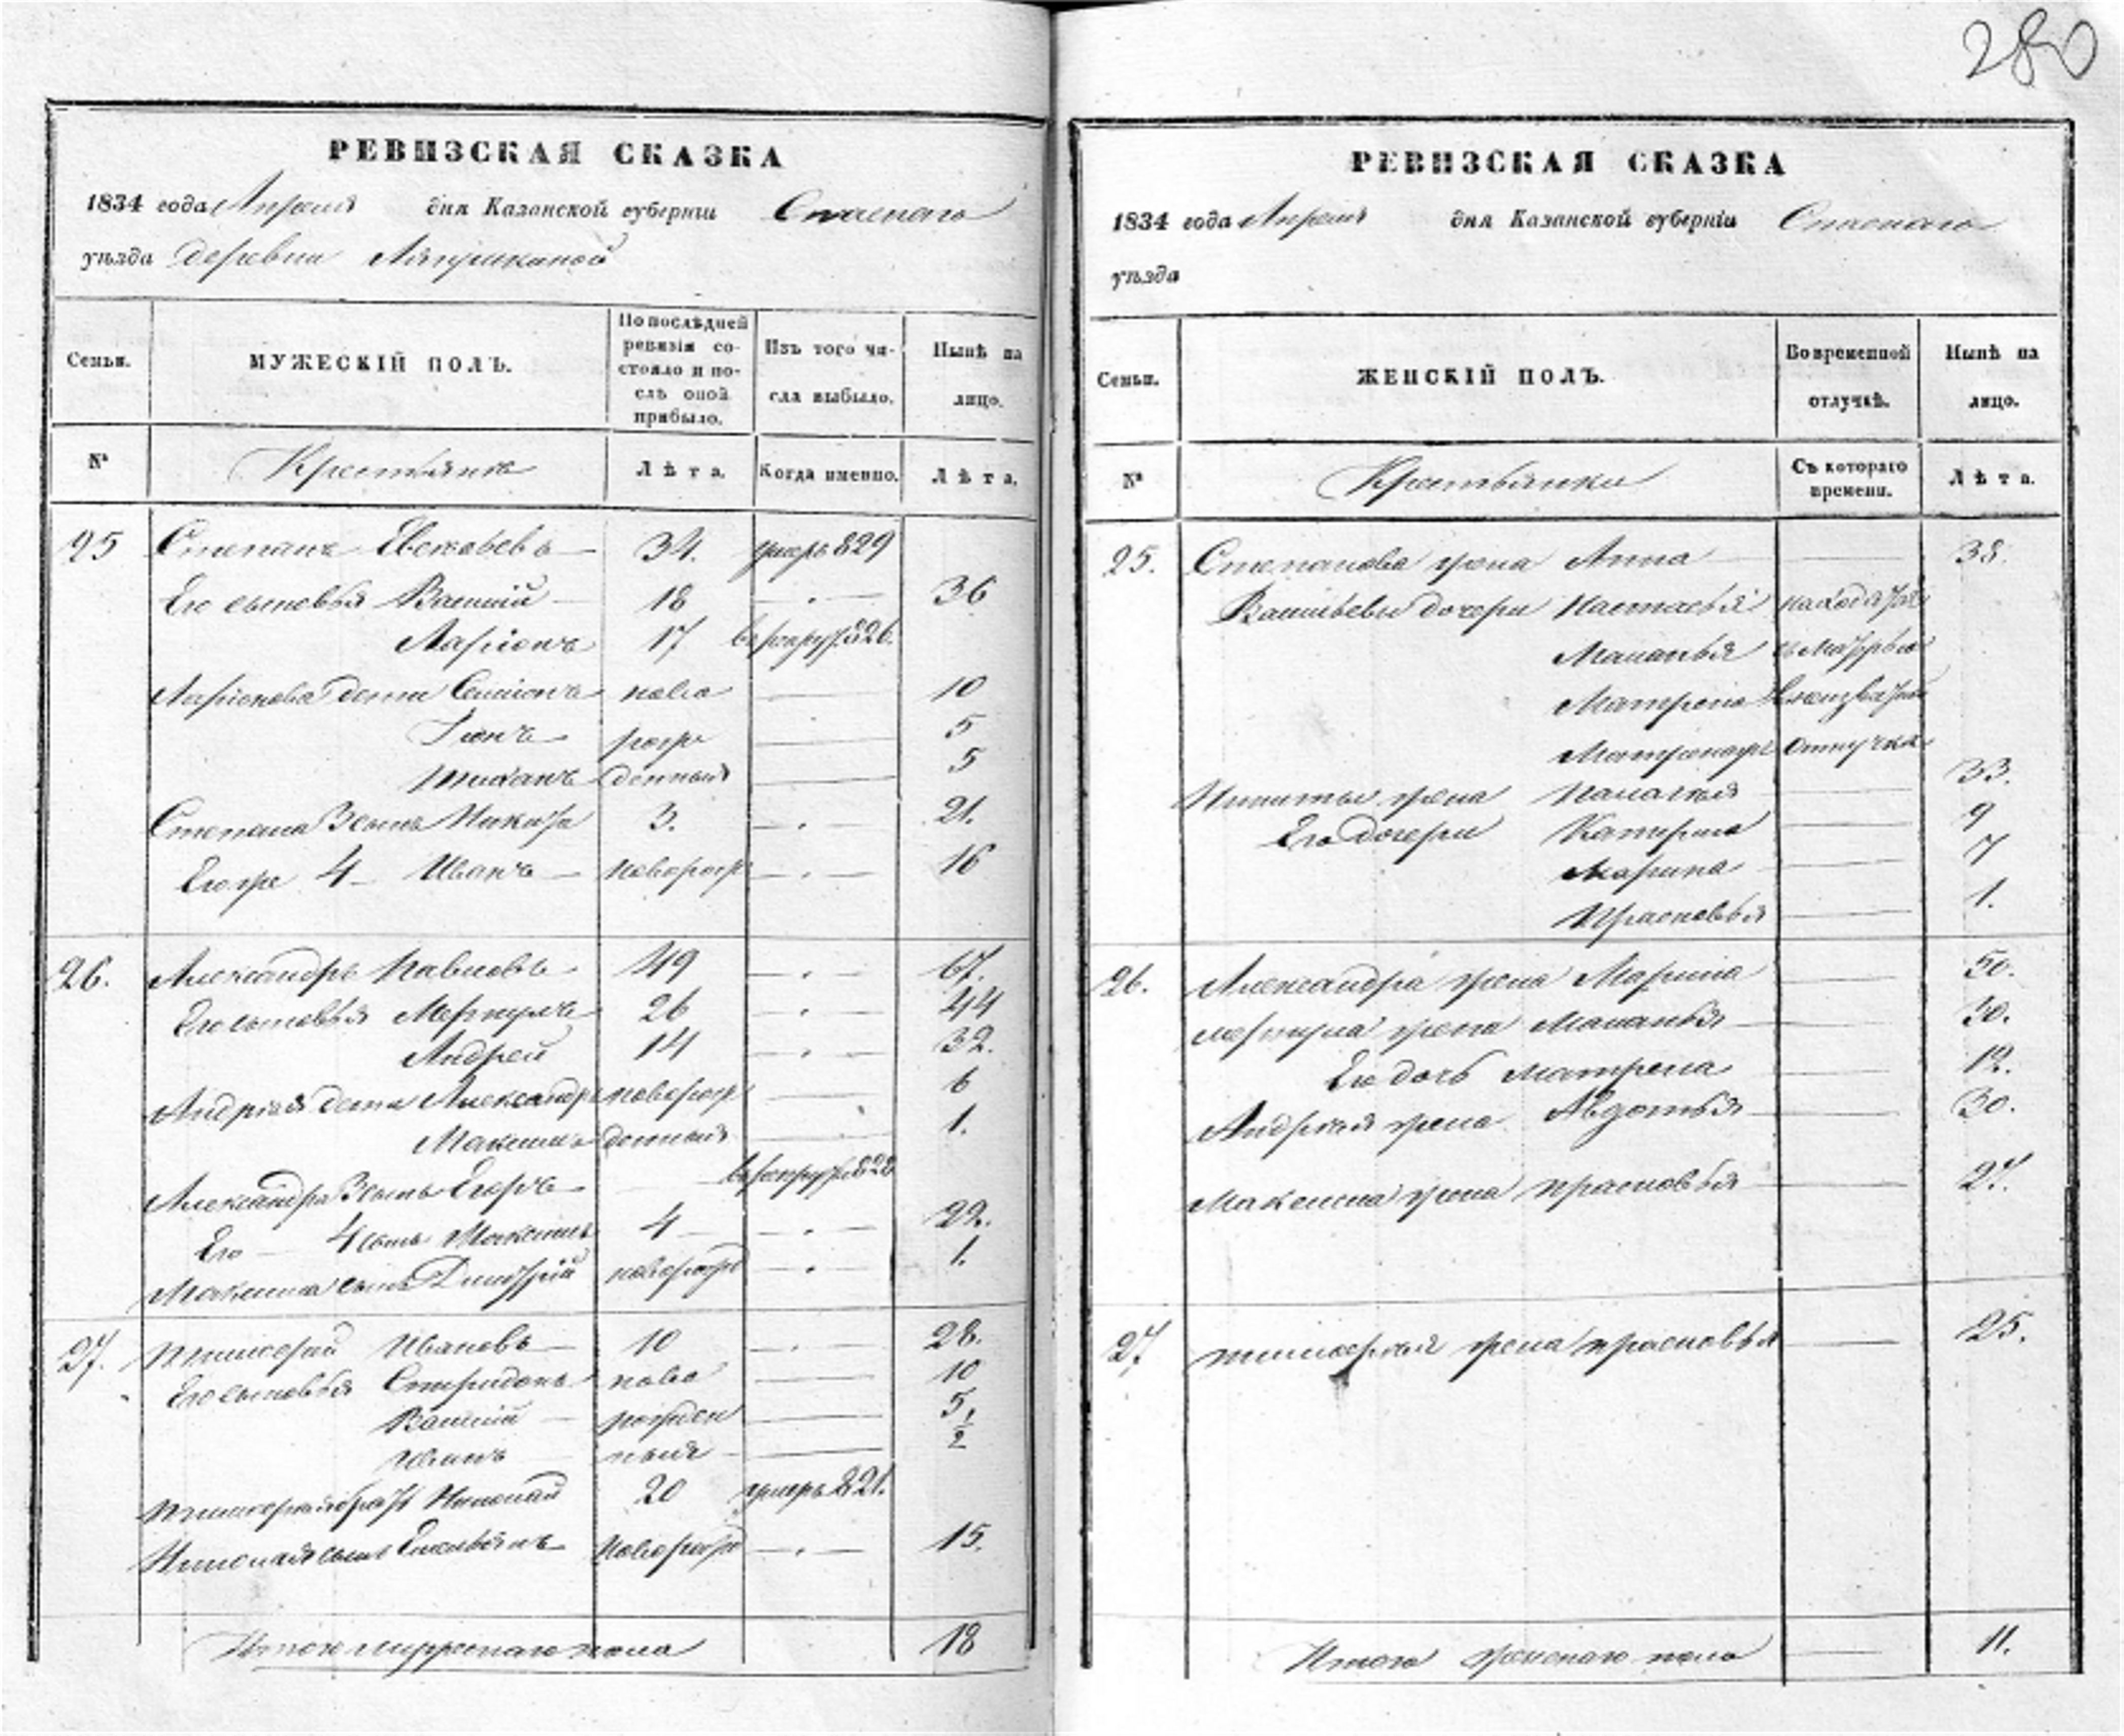 280
РЕВИЗСКАЯ СКАЗКА
1834 года Апреля дня Казанской губерніи Спаскаго
уѣзда деревни
Семьи.
МУЖЕСКІЙ ПОЛЪ.
По послѣдней ревизіи состояло и послѣ оной прибыло.
Изъ того числа выбыло.
Нынѣ на лицо.
№
Крестьяне
Лѣта.
Когда именно.
Лѣта.
25 Степанъ 34. умеръ 829
Его сыновья Василий — 18 — 36
Ларіонъ 17 в рекруты 826.
Ларіонова дети Семионъ ново — 10
рож — 5
денныя — 5
Степана 3 сынъ Никита 3. — 21.
Его же 4 — Иванъ — новорож — 16
26. Александръ Павловъ 49 — 67.
Его сыновья Меркулъ 26 — 44
Андрей 14 — 32.
Андрея дети Александръ новорож — 6
Максимъ денныя — 1.
Александра 3 сынъ Егоръ — в рекруты 828
Его — 4 сынъ Максимъ 4 — 22.
Максима сынъ Дмитрий новорож — 1.
27. Тимофей Ивановъ 10 — 28.
Его сыновья Спиридонъ ново — 10
Василий — рожден — 5
Иванъ ныя — 1/2
Тимофея братъ Николай 20 умеръ 821.
Николая сынъ Емельянъ новорож — 15.
Итого мужескаго пола 18
РЕВИЗСКАЯ СКАЗКА
1834 года Апреля дня Казанской губерніи Спаскаго
уѣзда
Семьи.
ЖЕНСКІЙ ПОЛЪ.
Во временной отлучкѣ.
Нынѣ на лицо.
№
Крестьянки
Съ котораго времени.
Лѣта.
25. Степанова жена Анна — 38.
Васильевы дочери Настасья находятся
Маланья с матерью
Матрена
отлучке
Никиты жена Палагея 33.
Его дочери Катерина — 9
Марина — 7
Прасковья — 1.
26. Александра жена Марина — 50.
Меркула жена Маланья — 30.
Его дочь Матрена — 12.
Андрея жена Авдотья — 30.
Максима жена Прасковья — 27.
27 Тимофея жена Прасковья — 25.
Итого женскаго пола — 11.